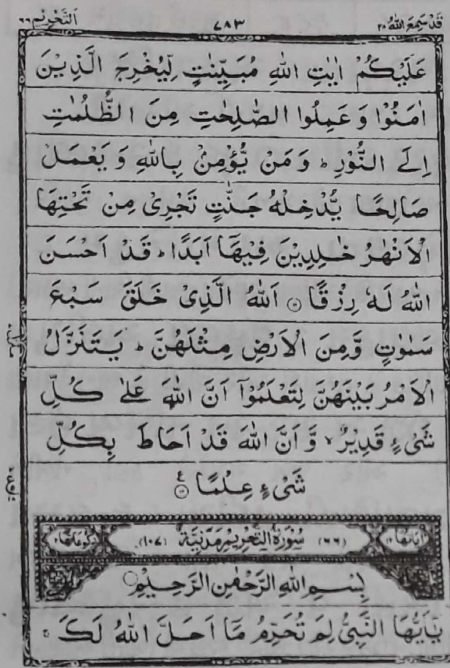 قَدْ سَمِعَ اللّٰهُ ٢٨ ٧٨٣ اَلتَّحْرِیْمِ ٦٦
عَلَیْكُمْ اٰیٰتِ اللّٰهِ مُبَیِّنٰتٍ لِّیُخْرِجَ الَّذِیْنَ
اٰمَنُوْا وَ عَمِلُوا الصّٰلِحٰتِ مِنَ الظُّلُمٰتِ
اِلَی النُّوْرِ ؕ وَ مَنْ یُّؤْمِنْۢ بِاللّٰهِ وَ یَعْمَلْ
صَالِحًا یُّدْخِلْهُ جَنّٰتٍ تَجْرِیْ مِنْ تَحْتِهَا
الْاَنْهٰرُ خٰلِدِیْنَ فِیْهَاۤ اَبَدًا ؕ قَدْ اَحْسَنَ
اللّٰهُ لَهٗ رِزْقًا ○ اَللّٰهُ الَّذِیْ خَلَقَ سَبْعَ
سَمٰوٰتٍ وَّ مِنَ الْاَرْضِ مِثْلَهُنَّ ؕ یَتَنَزَّلُ
الْاَمْرُ بَیْنَهُنَّ لِتَعْلَمُوْۤا اَنَّ اللّٰهَ عَلٰی كُلِّ
شَیْءٍ قَدِیْرٌ ۙ وَّ اَنَّ اللّٰهَ قَدْ اَحَاطَ بِكُلِّ
شَیْءٍ عِلْمًا ○ ع
(٦٦) سُوْرَةُ التَّحْرِیْمِ مَدَنِیَّةٌ (١٠٧)
بِسْمِ اللّٰهِ الرَّحْمٰنِ الرَّحِیْمِ ○
یٰۤاَیُّهَا النَّبِیُّ لِمَ تُحَرِّمُ مَاۤ اَحَلَّ اللّٰهُ لَكَ ۚ